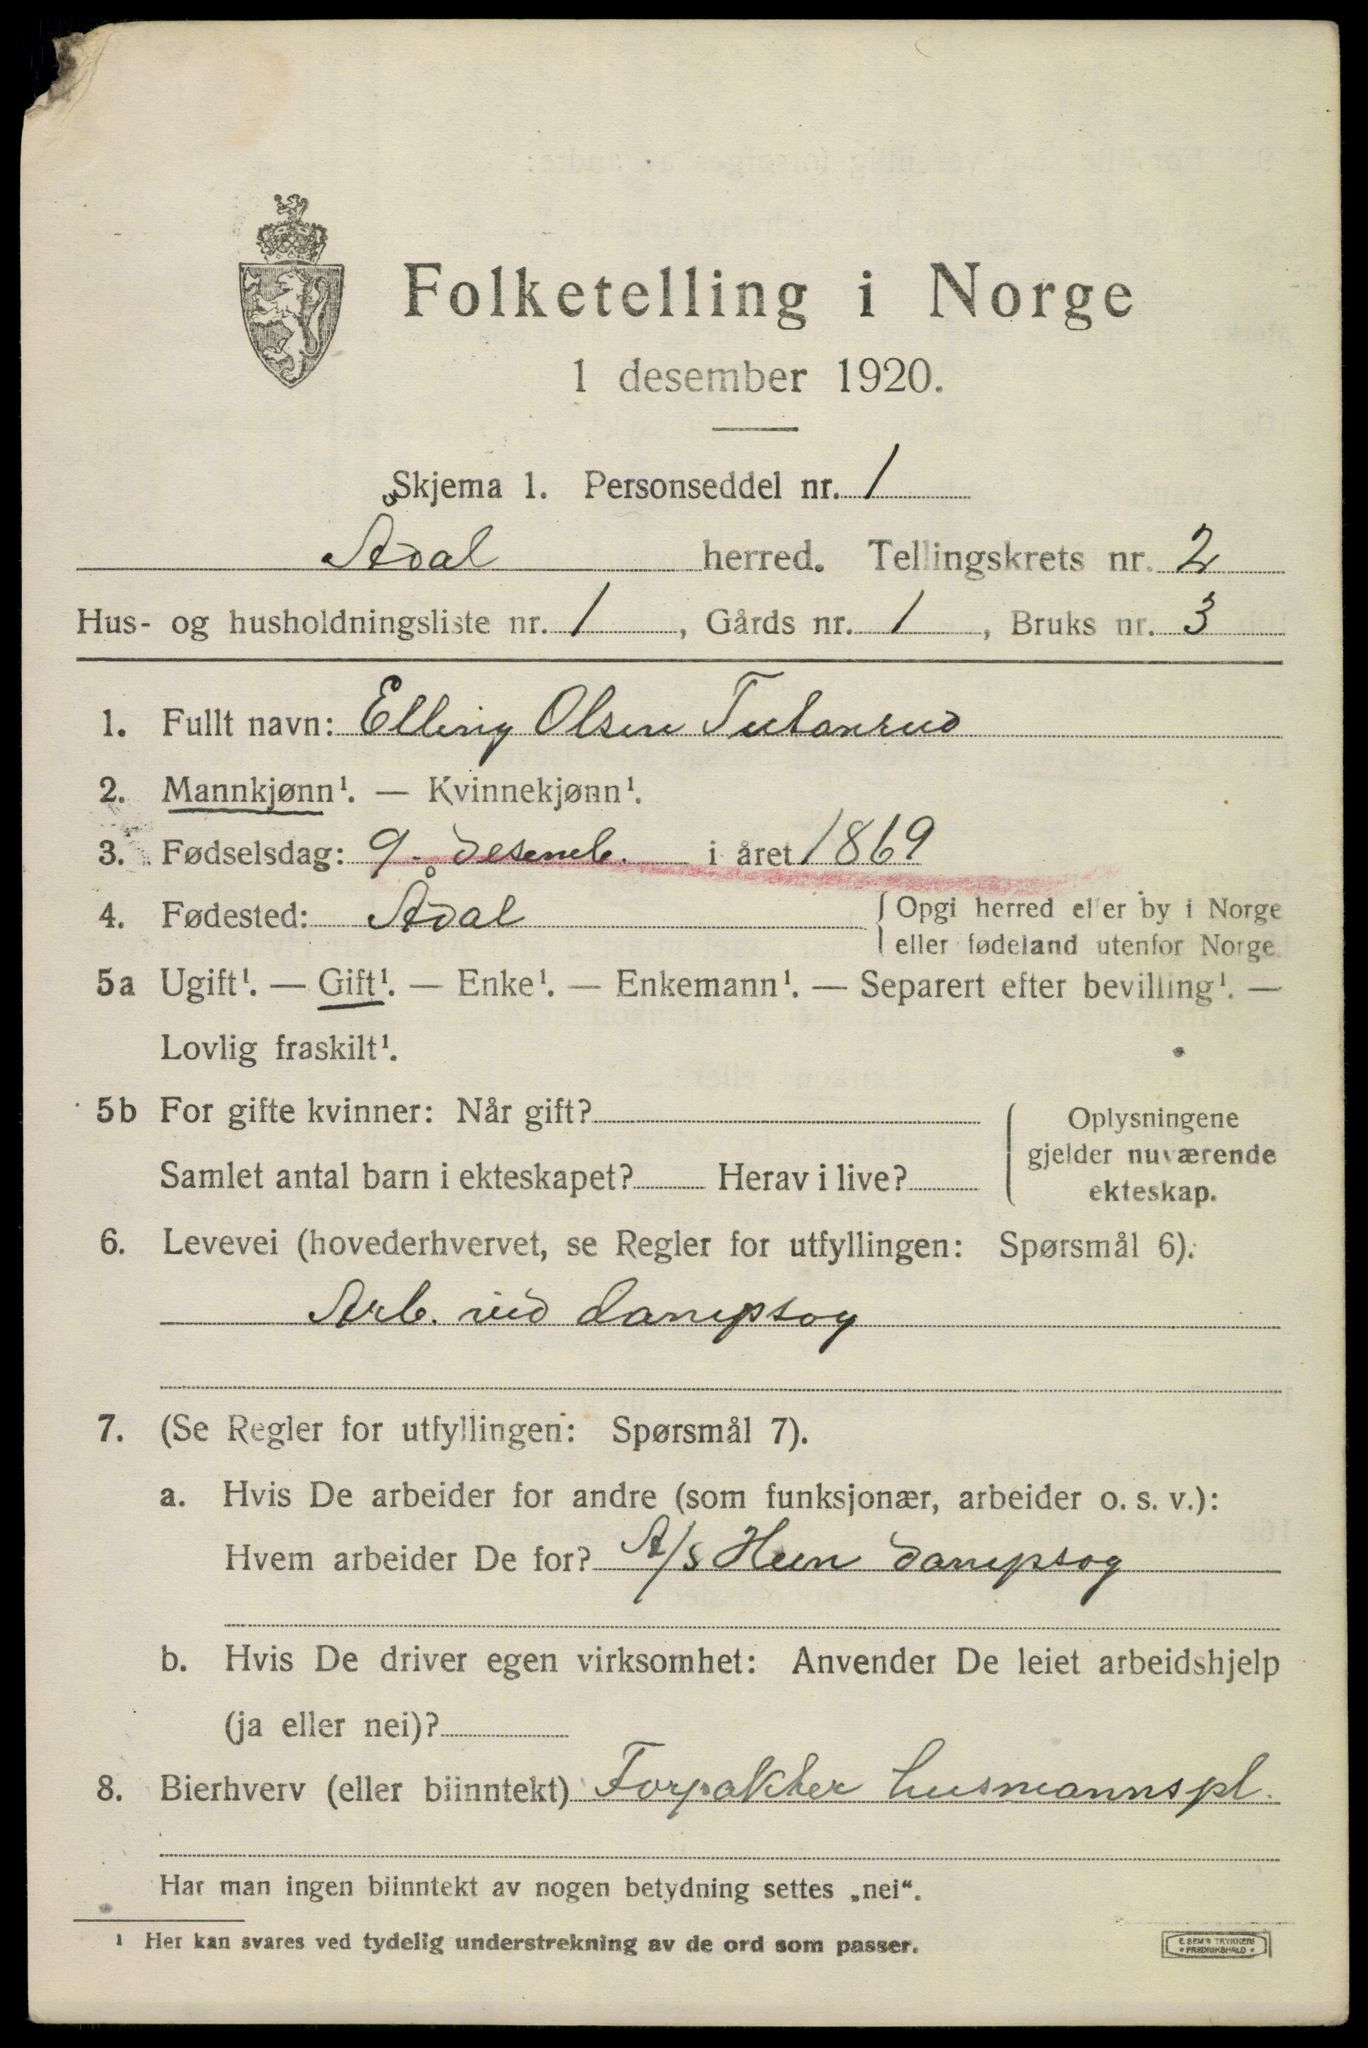 Folketelling i Norge
1 desember 1920.
Skjema 1. Personseddel nr. 1
Ådal herred. Tellingskrets nr. 2
Hus- og husholdningsliste nr. 1, Gårds nr. 1, Bruks nr. 3
1. Fullt navn: Elling Olsen
2. Mannkjønn¹. — Kvinnekjønn¹.
3. Fødselsdag: 9. desemb. i året 1869
4. Fødested: Ådal {Opgi herred eller by i Norge
eller fødeland utenfor Norge.
5a Ugift¹. — Gift¹. — Enke¹. — Enkemann¹. — Separert efter bevilling¹. —
Lovlig fraskilt¹.
5b For gifte kvinner: Når gift?
Samlet antal barn i ekteskapet? Herav i live?
Oplysningene
gjelder nuværende
ekteskap.
6. Levevei (hovederhvervet, se Regler for utfyllingen: Spørsmål 6).
Arb. ved dampsag
7. (Se Regler for utfyllingen: Spørsmål 7).
a. Hvis De arbeider for andre (som funksjonær, arbeider o. s. v.):
Hvem arbeider De for? A/s Heen dampsag
b. Hvis De driver egen virksomhet: Anvender De leiet arbeidshjelp
(ja eller nei)?
8. Bierhverv (eller biinntekt) Forpakter husmannspl.
Har man ingen biinntekt av nogen betydning settes „nei“.
¹ Her kan svares ved tydelig understrekning av de ord som passer.
E. SEM'S TRYKKERI
FREDRIKSHALD